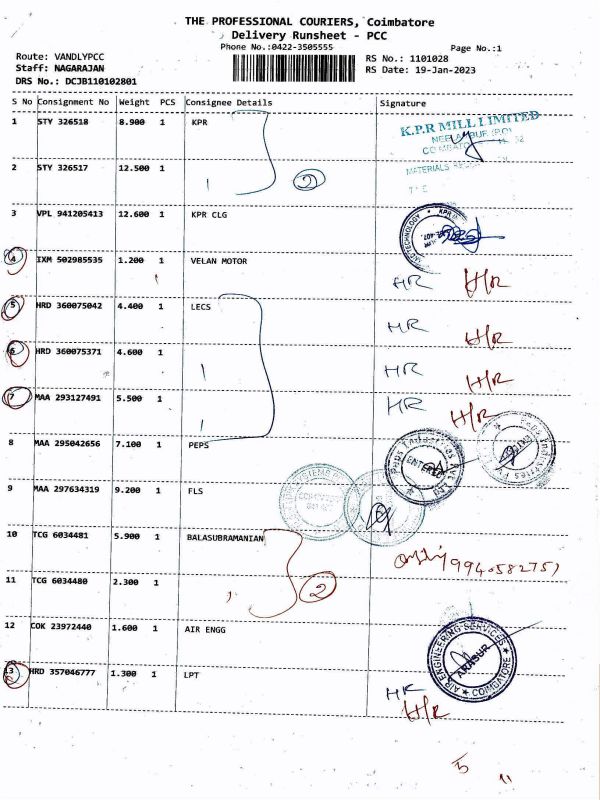 THE PROFESSIONAL COURIERS, Coimbatore
Delivery Runsheet - PCC
Phone No.:0422-3505555
Page No.:1
Route: VANDLYPCC
Staff: NAGARAJAN
DRS No.: DCJB110102801
RS No.: 1101028
RS Date: 19-Jan-2023
S No Consignment No Weight PCS Consignee Details Signature
1 STY 326518 8.900 1 KPR
K.P.R MILL LIMITED
2 STY 326517 12.500 1
2
MATERIALS
3 VPL 941205413 12.600 1 KPR CLG
4 IXM 502985535 1.200 1 VELAN MOTOR
HR H/R
5 HRD 360075042 4.400 1 LECS
HR H/R
6 HRD 360075371 4.600 1
HR H/R
7 MAA 293127491 5.500 1
HR H/R
8 MAA 295042656 7.100 1 PEPS
9 MAA 297634319 9.200 1 FLS
10 TCG 6034481 5.900 1 BALASUBRAMANIAN
11 TCG 6034480 2.300 1
2
12 COK 23972440 1.600 1 AIR ENGG
AIR ENGINEERING SERVICES
ARASUR
COIMBATORE
13 HRD 357046777 1.300 1 LPT
HR
H/R
5
11